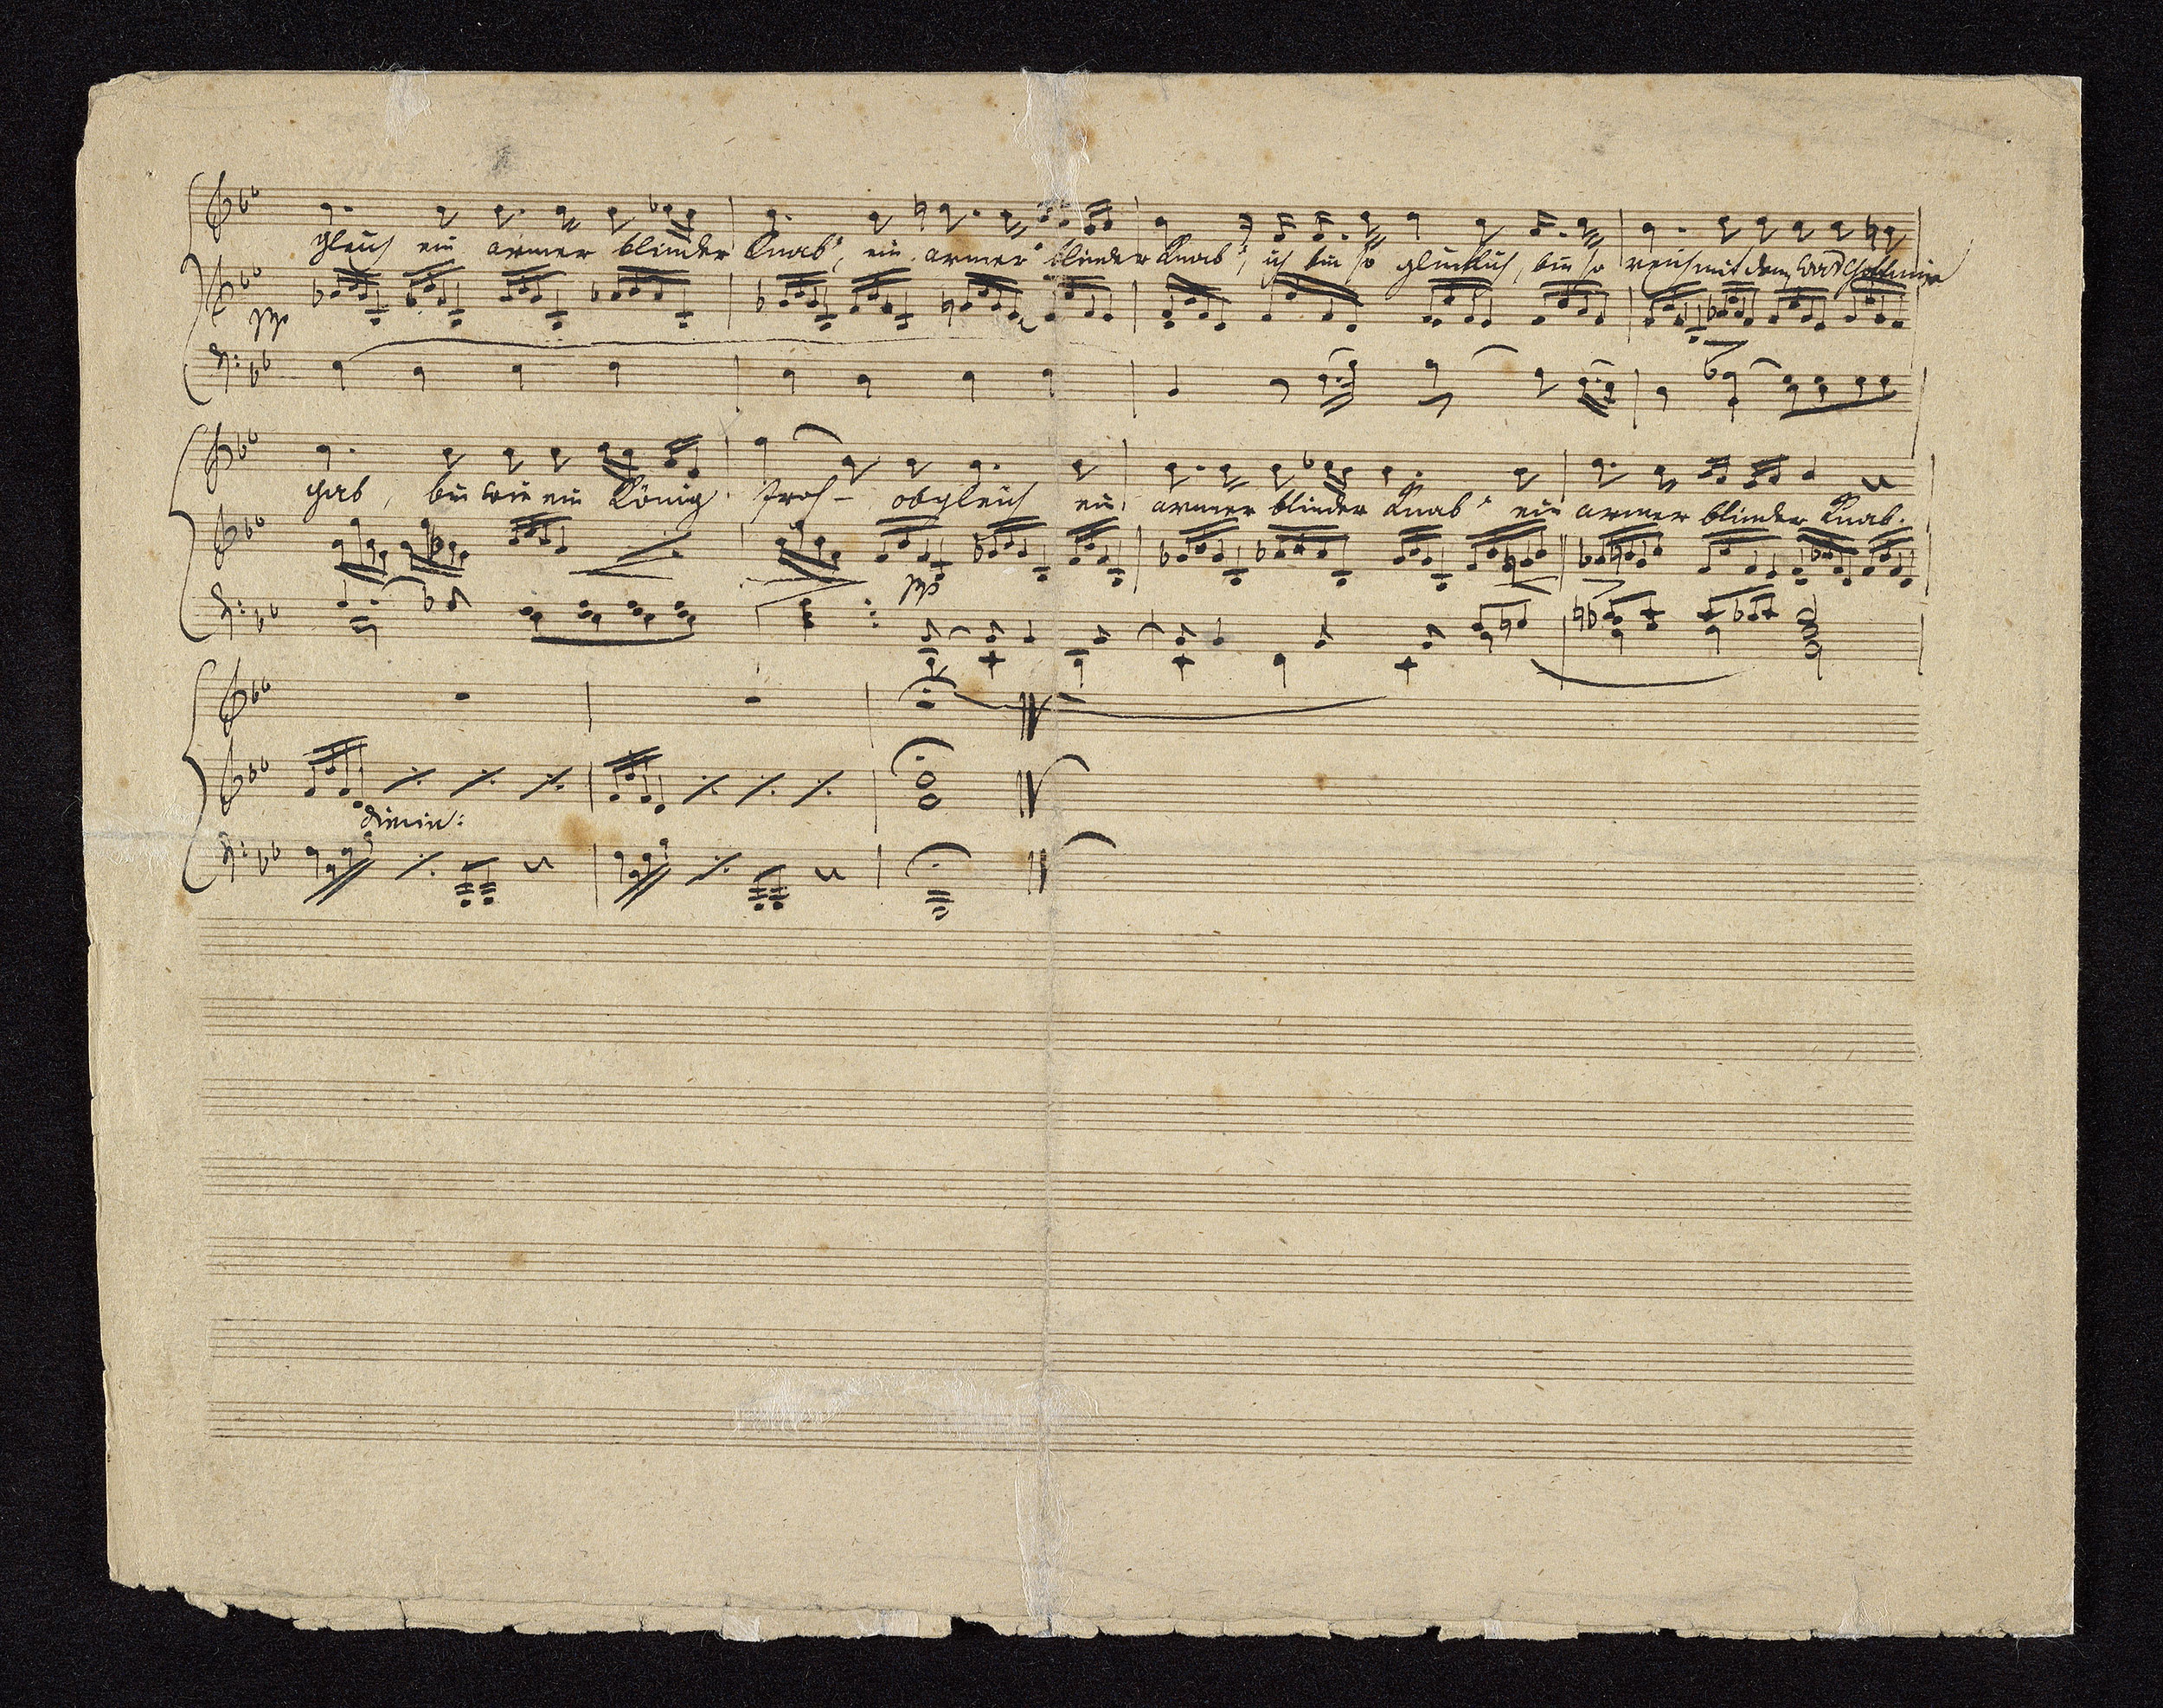 gleich ein armer blinder Knab', ein armer blinder Knab', ich bin so glücklich, bin so reich mit dem, was Gott mir
pp
gab, bin wie ein König froh – obgleich ein armer blinder Knab' ein armer blinder Knab.
pp
dimin: